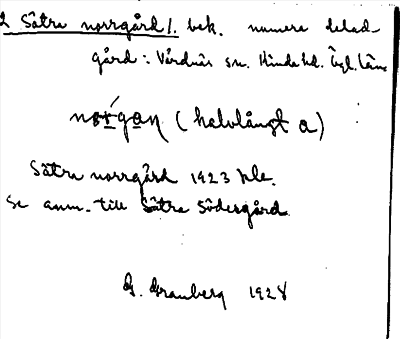 2 Sätra norrgård 1. bek. numera delad
gård : Vårdnäs sn. Kinda hd. Ögl. län
norgan (halvlångt a)
Sätra norrgård 1923 jrle.
Se anm. till Sätra Södergård
G. Granberg 1928